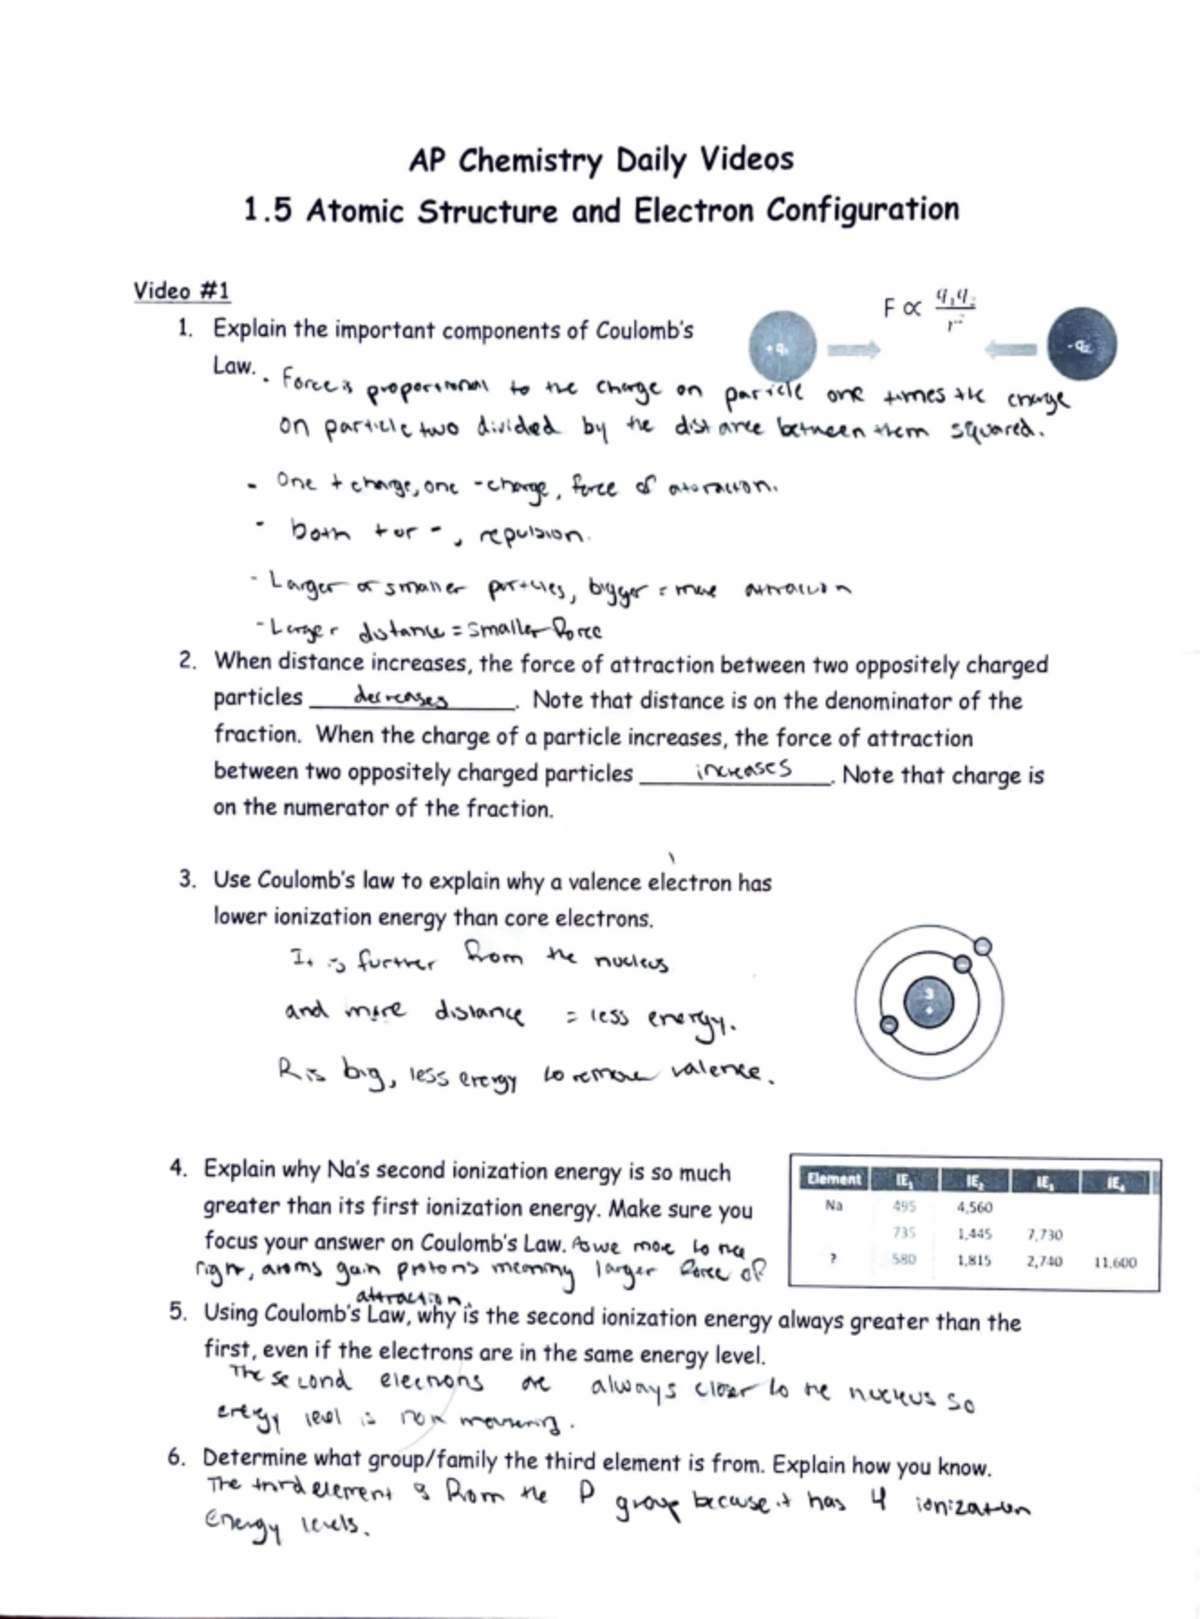 AP Chemistry Daily Videos
1.5 Atomic Structure and Electron Configuration
Video #1
1. Explain the important components of Coulomb's
Law.
F ∝ q₁q₂ / r²
+q₁
-q₂
· Force is proportional to the charge on particle one times the charge
on particle two divided by the distance between them squared.
- One + charge, one - charge, force of attraction.
- both + or -, repulsion.
- Larger or smaller particles, bigger = more attraction
- Larger distance = smaller force
2. When distance increases, the force of attraction between two oppositely charged
particles decreases. Note that distance is on the denominator of the
fraction. When the charge of a particle increases, the force of attraction
between two oppositely charged particles increases. Note that charge is
on the numerator of the fraction.
3. Use Coulomb's law to explain why a valence electron has
lower ionization energy than core electrons.
It is further from the nucleus
and more distance = less energy.
R is big, less energy to remove valence.
3
+
4. Explain why Na's second ionization energy is so much
greater than its first ionization energy. Make sure you
focus your answer on Coulomb's Law. As we move to the
right, atoms gain protons meaning larger force of
attraction.
Element IE₁ IE₂ IE₃ IE₄
Na 495 4,560
735 1,445 7,730
? 580 1,815 2,740 11,600
5. Using Coulomb's Law, why is the second ionization energy always greater than the
first, even if the electrons are in the same energy level.
The second electrons are always closer to the nucleus so
energy level is
6. Determine what group/family the third element is from. Explain how you know.
The third element is from the P group because it has 4 ionization
energy levels.